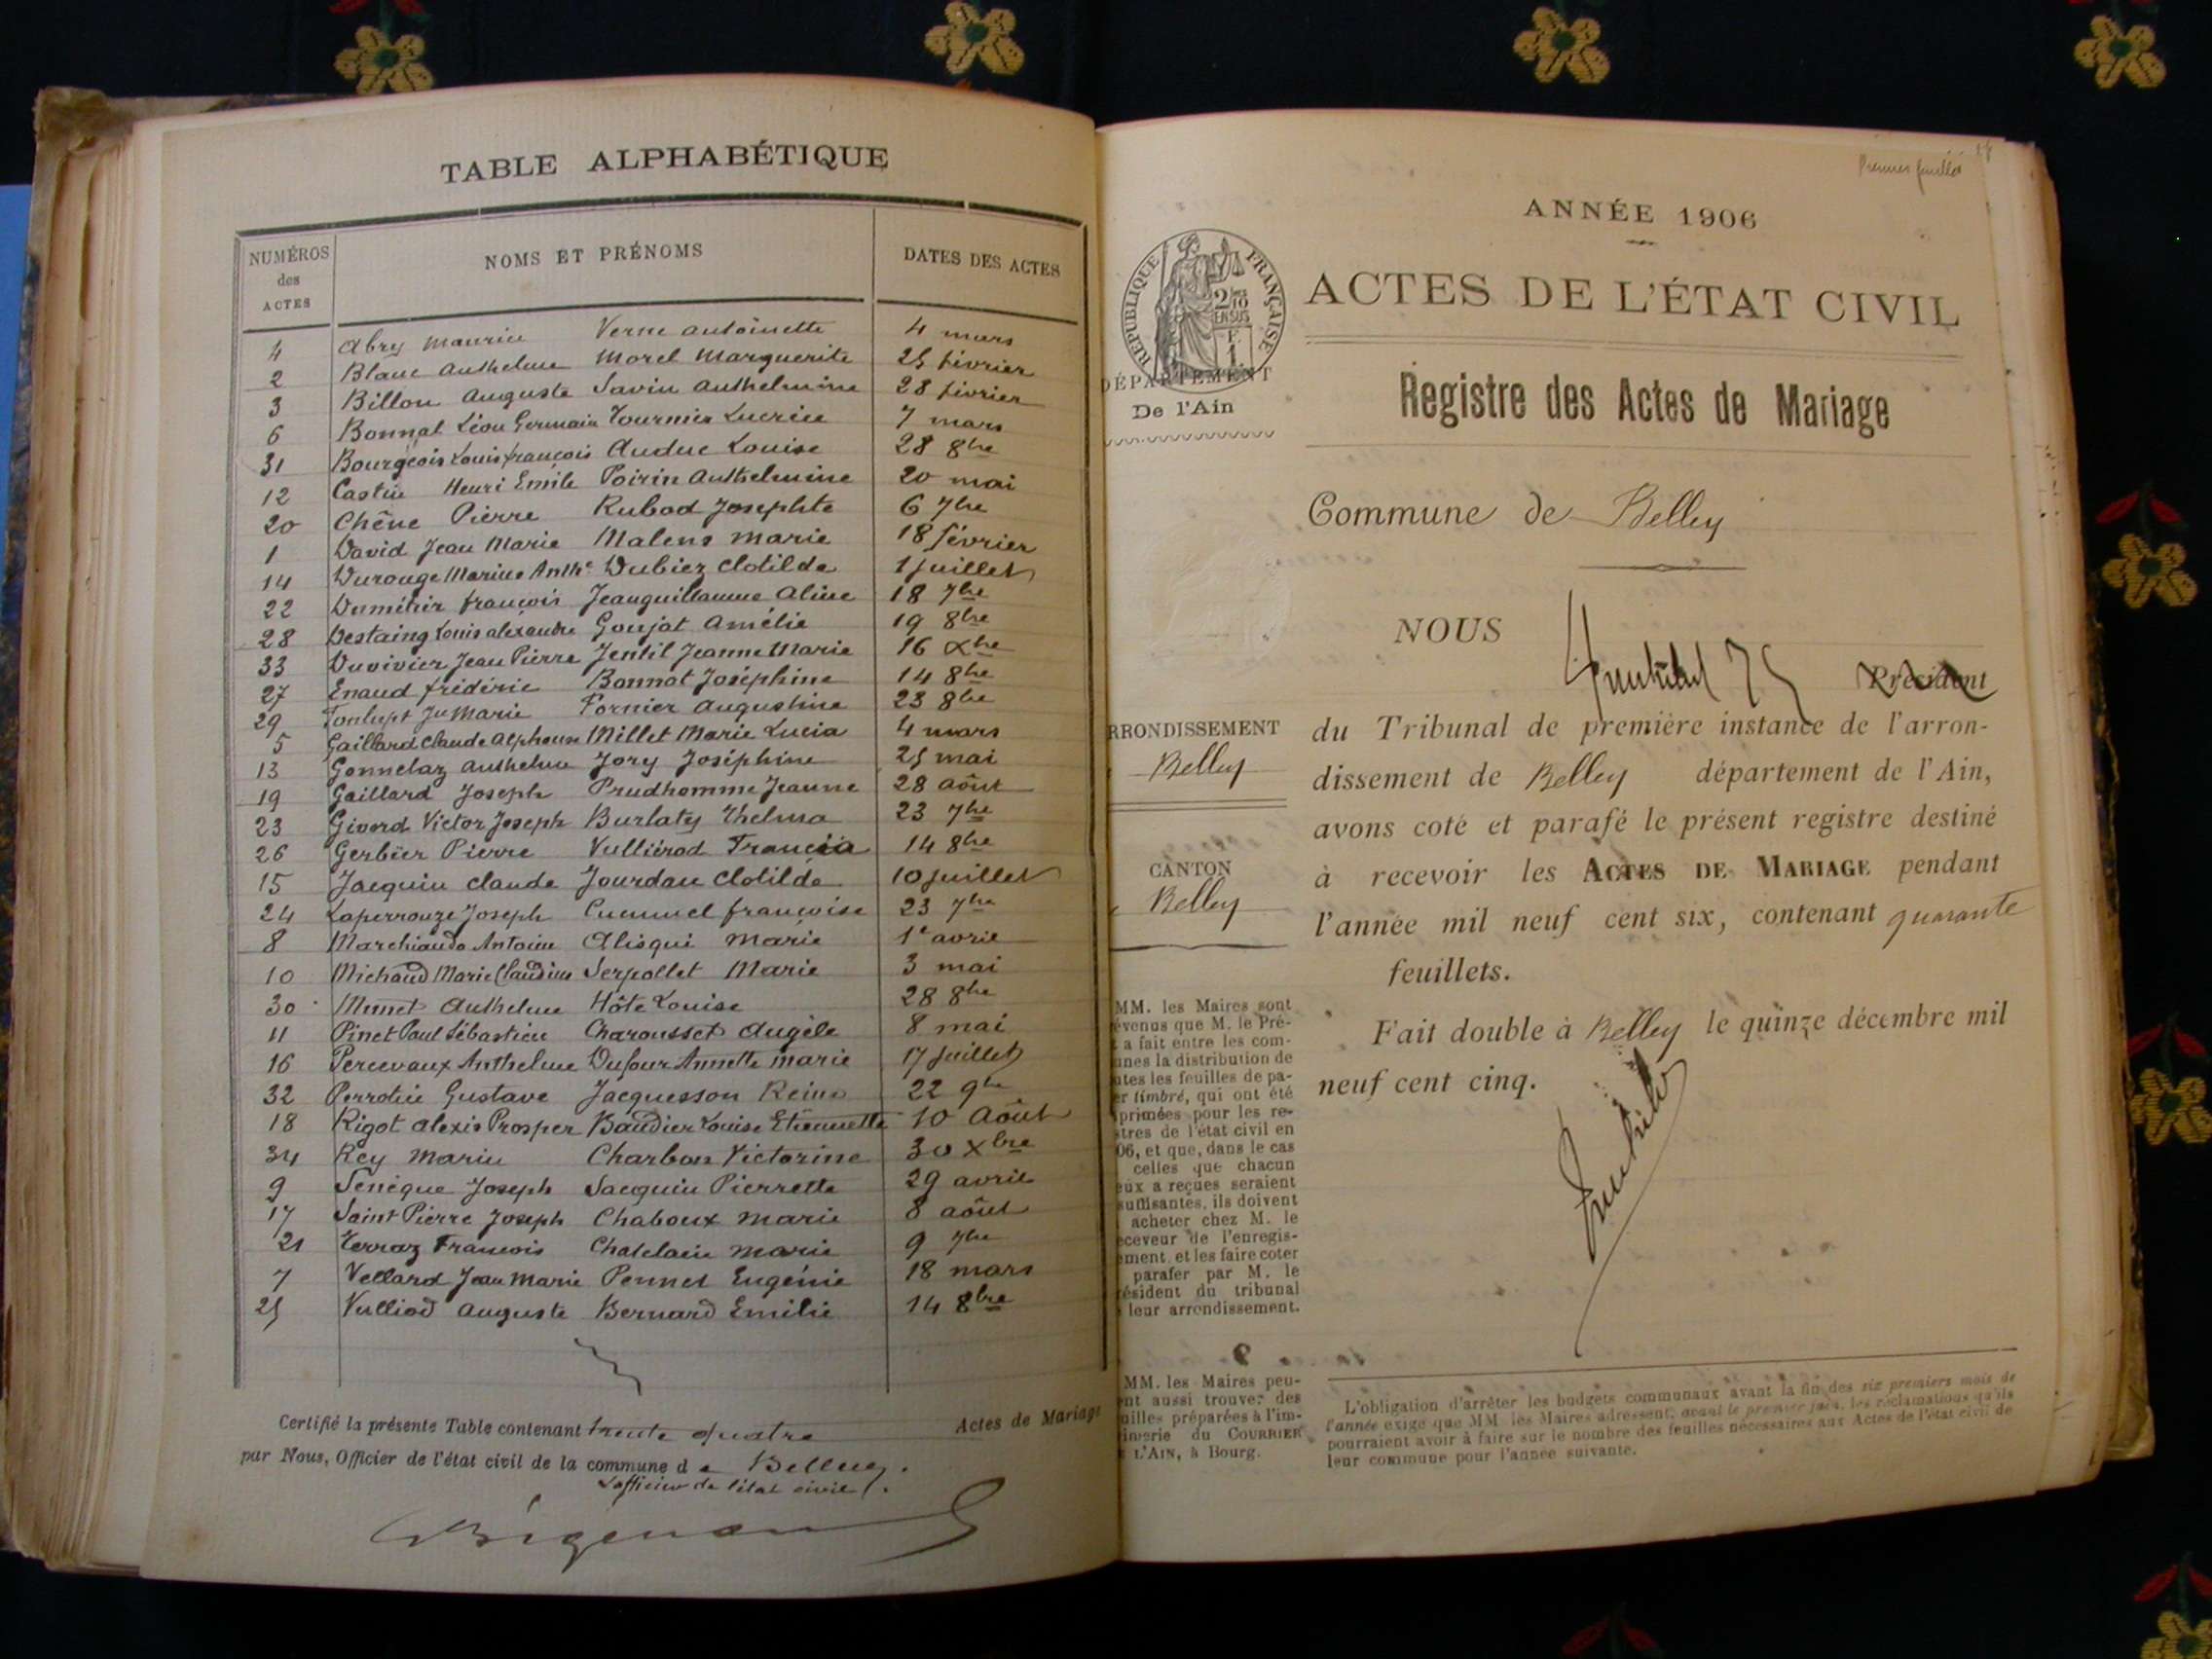 TABLE ALPHABÉTIQUE
NUMÉROS des ACTES NOMS ET PRÉNOMS DATES DES ACTES
4 Abry Maurice Verne Antoinette 4 mars
2 Blanc Anthelme Morel Marguerite 25 février
3 Billon Auguste Savin Anthelmine 28 février
6 Bonnat Léon Germain Tournier Lucrèce 7 mars
31 Bourgeois Louis françois Auduc Louise 28 8bre
12 Castin Henri Emile Poirin Anthelmine 20 mai
20 Chêne Pierre Rubod Josephte 6 7bre
1 David Jean Marie Malens Marie 18 février
14 Durouge Marius Anthe Dubiez Clotilde 1 juillet
22 Dumétier françois Jeanguillaume Aline 18 7bre
28 Destaing Louis alexandre Goujat Amélie 19 8bre
33 Duvivier Jean Pierre Jentil Jeanne Marie 16 Xbre
27 Enaud frédéric Bonnat Joséphine 14 8bre
29 Fontupt Jn Marie Fornier Augustine 23 8bre
5 Gaillard Claude Alphonse Millet Marie Lucia 4 mars
13 Gonnelaz Anthelme Jory Joséphine 25 mai
19 Gaillard Joseph Prudhomme Jeanne 28 Août
23 Givord Victor Joseph Burlaty Thelma 23 7bre
26 Gerbier Pierre Vulliérod Francia 14 8bre
15 Jacquin Claude Jourdan Clotilde 10 juillet
24 Laperrouze Joseph Cucumel françoise 23 7bre
8 Marchiando Antoine Alisqui Marie 1er avril
10 Michaud Marie Claudius Serpollet Marie 3 mai
30 Munet Anthelme Hôte Louise 28 8bre
11 Pinet Paul Sébastien Charousset Angèle 8 mai
16 Percevaux Anthelme Dufour Annette Marie 17 juillet
32 Perrotin Gustave Jacquesson Reine 22 9bre
18 Rigot Alexis Prosper Baudier Louise Etiennette 10 Août
34 Rey Marin Charbon Victorine 30 Xbre
9 Senèque Joseph Jacquin Pierrette 29 avril
17 Saint Pierre Joseph Chaboux Marie 8 août
21 Terraz François Chatelain Marie 9 7bre
7 Vellard Jean Marie Pennet Eugénie 18 mars
25 Vulliod Auguste Bernard Emilie 14 8bre
Certifié la présente Table contenant trente quatre Actes de Mariage
par Nous, Officier de l'état civil de la commune de Belley.
L'officier de l'état civil.
Premier feuillet
ANNÉE 1906
RÉPUBLIQUE FRANÇAISE
2/10 EN SUS
F. 1.
DÉPARTEMENT
De l'Ain
ACTES DE L'ÉTAT CIVIL
Registre des Actes de Mariage
Commune de Belley
NOUS
Président
du Tribunal de première instance de l'arron-
dissement de Belley département de l'Ain,
avons coté et parafé le présent registre destiné
à recevoir les ACTES DE MARIAGE pendant
l'année mil neuf cent six, contenant quarante
feuillets.
Fait double à Belley le quinze décembre mil
neuf cent cinq.
RRONDISSEMENT
Belley
CANTON
Belley
MM. les Maires sont
évenus que M. le Pré-
t a fait entre les com-
unes la distribution de
utes les feuilles de pa-
er timbré, qui ont été
primées pour les re-
stres de l'état civil en
06, et que, dans le cas
celles que chacun
eux a reçues seraient
suffisantes, ils doivent
acheter chez M. le
eceveur de l'enregis-
ement, et les faire coter
parafer par M. le
résident du tribunal
leur arrondissement.
MM. les Maires peu-
ent aussi trouver des
uilles préparées à l'im-
imerie du COURRIER
L'AIN, à Bourg.
L'obligation d'arrêter les budgets communaux avant la fin des six premiers mois de
l'année exige que MM. les Maires adressent, avant le premier juin, les réclamations qu'ils
pourraient avoir à faire sur le nombre des feuilles nécessaires aux Actes de l'état civil de
leur commune pour l'année suivante.